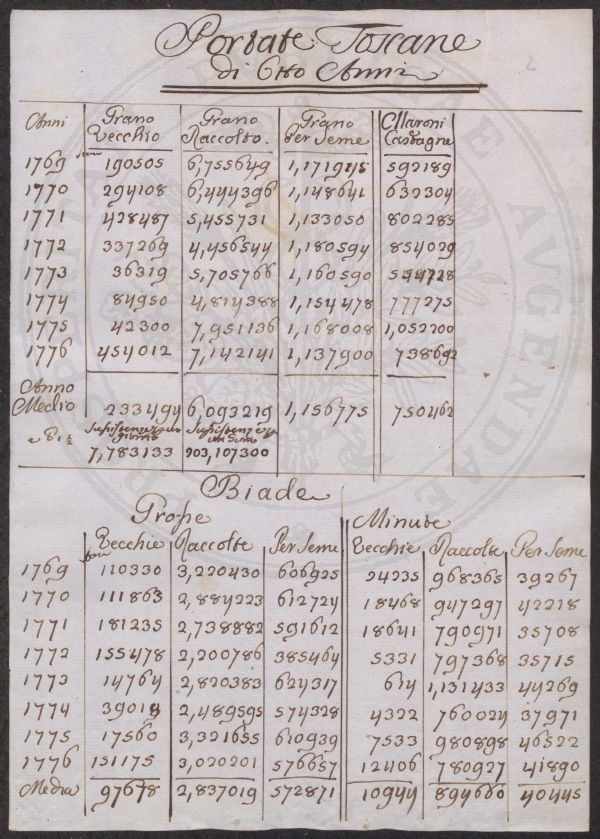 Portate Toscane
di Otto Anni
Anni Grano Vecchio Grano Raccolto. Grano Per Seme Marroni Castagne
1769 190505 6,755649 1,171945 592189
1770 294108 6,444396 1,148641 632304
1771 428487 5,455731 1,133050 802285
1772 337269 4,456544 1,180594 854029
1773 36319 5,705766 1,160590
1774 84950 4,814388 1,154478 777275
1775 42300 7,951136 1,168008 1,052200
1776 454012 7,142141 1,137900 738692
Anno
Medio 233494 6,093219 1,156775 750462
7,783133 203,107300
Biade
Grosse Minute
Vecchie Raccolte Per Seme Vecchie Raccolte Per Seme
1769 110330 3,220430 606925 24235 968365 39267
1770 111863 2,884223 612724 18468 947297 42218
1771 181235 2,738882 591612 18641 790971 35708
1772 155478 2,200786 385464 5331 797368 35715
1773 14764 2,820383 624317 614 1,131433 44269
1774 39018 2,489595 574328 4322 760024 37971
1775 17560 3,321655 610939 7533 980898 46522
1776 151175 3,020201 576657 12406 780927 41890
Media 97678 2,837019 572871 10944 894660 40445